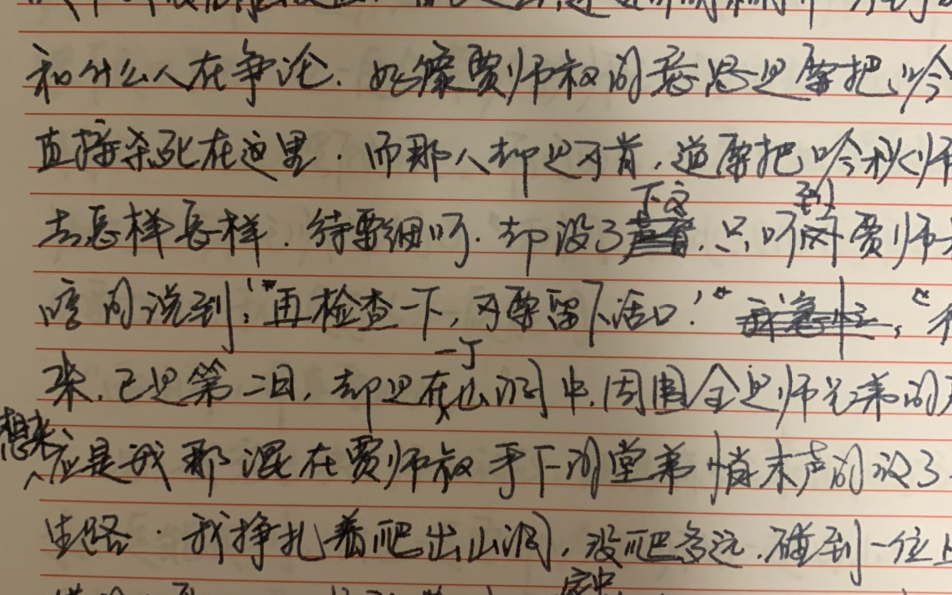 和什么人在争论. 好像贾师叔的意思是要把吟
直接杀死在这里. 而那人却是不肯, 道要把吟秋师
去怎样怎样. 待要细听. 却没了下文. 只听到贾师
的说到: "再检查一下, 不要留下活口." "
来, 已是第二日, 却是在一个山洞中, 周围全是师兄弟的
想来应是我那混在贾师叔手下的堂弟悄木声的没了
生路. 我挣扎着爬出山洞, 没爬多远. 碰到一位